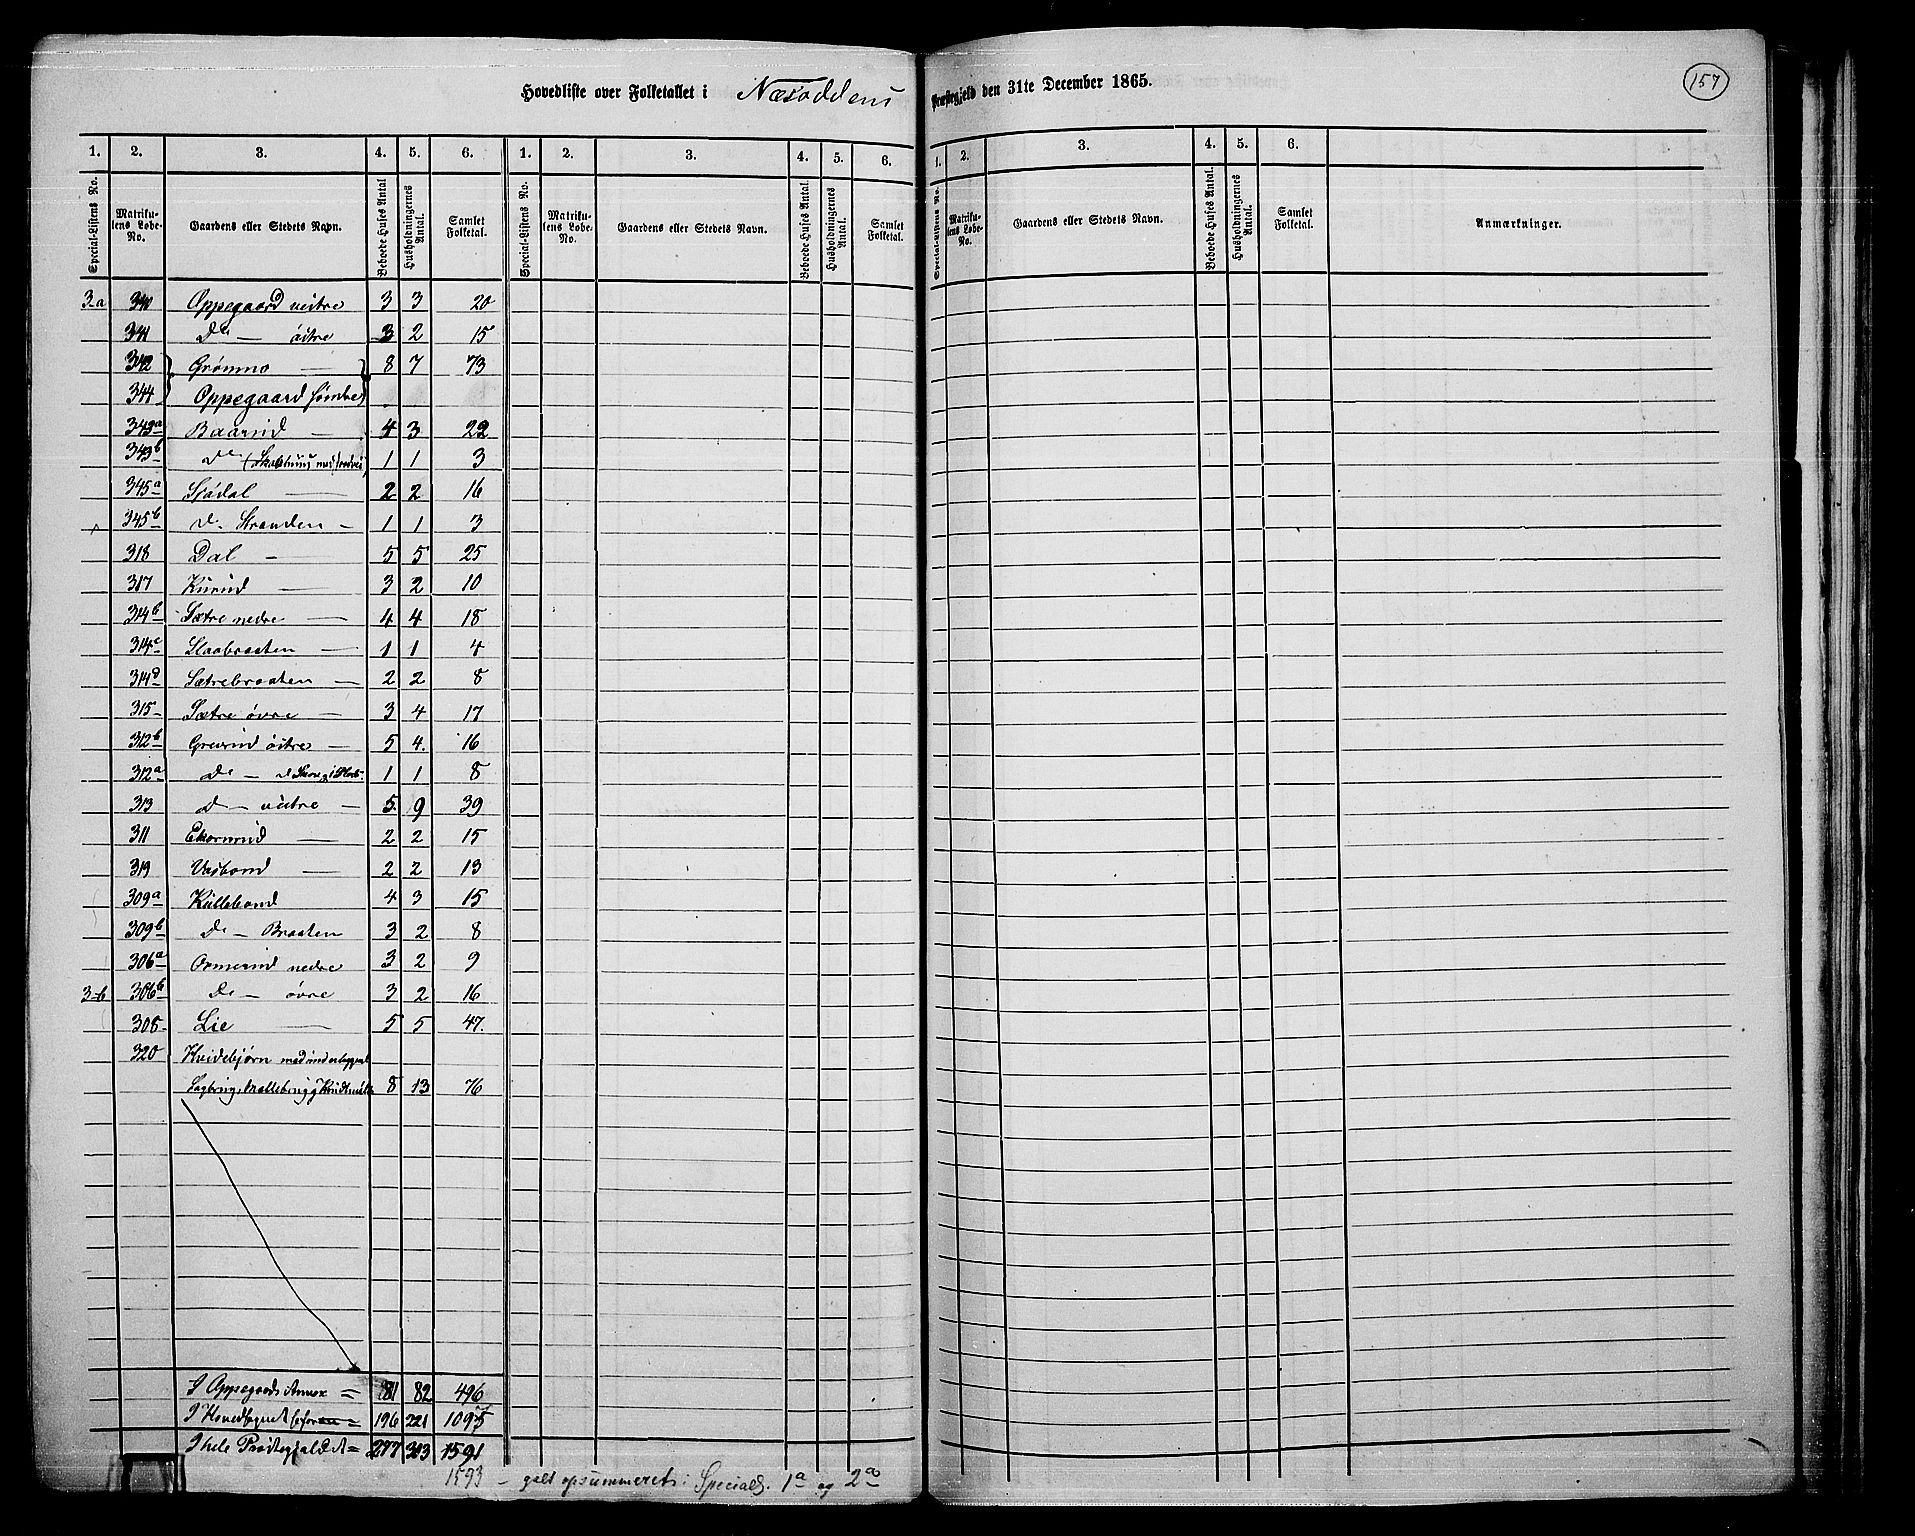 157
Hovedliste over Folketallet i Næsoddens Præstegjeld den 31te December 1865.
1. 2. 3. 4. 5. 6. 1. 2. 3. 4. 5. 6. 1. 2. 3. 4. 5. 6.
Special-Listens No. Matrikulens Løbe-No. Gaardens eller Stedets Navn. Beboede Huses Antal Husholdningernes Antal. Samlet Folketal. Special-Listens No. Matrikulens Løbe-No. Gaardens eller Stedets Navn. Beboede Huses Antal. Husholdningernes Antal. Samlet Folketal. Special-Listens No. Matrikulens Løbe-No. Gaardens eller Stedets Navn. Beboede Huses Antal. Husholdningernes Antal. Samlet Folketal. Anmærkninger.
3-a 340 Oppegaard vestre 3 3 20
341 Do — østre 3 2 15
342 Grønmo — 8 7 73
344 Oppegaard søndre
343a Baarud — 4 3 22
343b Do 1 1 3
345a Sjødal — 2 2 16
345b Do Stranden — 1 1 3
318 Dal — 5 5 25
317 Kurud — 3 2 10
314b Sætre nedre — 4 4 18
314c Slaabraaten — 1 1 4
314d Sætrebraaten — 2 2 8
315 Sætre øvre — 3 4 17
312b Greverud østre — 5 4. 16
312a Do — 1 1 8
313 Do — vestre — 5 9 39
311 Ekornrud — 2 2 15
319 Vasbond — 2 2 13
309a Kullebond 4 3 15
309b Do — Braaten 3 2 8
306a Ormerud nedre 3 2 9
3-b 306b Do — øvre 3 2 16
308 Lie — 5 5 47.
320 Hvidebjørn med underliggende
Sagbrug, Møllebrug og Krudtmølle 8 13 76
I Oppegaards Annex = 81 82 496
I Hovedsognet = 196 221 1095
I hele Præstegjeldet = 277 303 1591
1593 — galt opsummeret i Speciall. 1a og 2ab